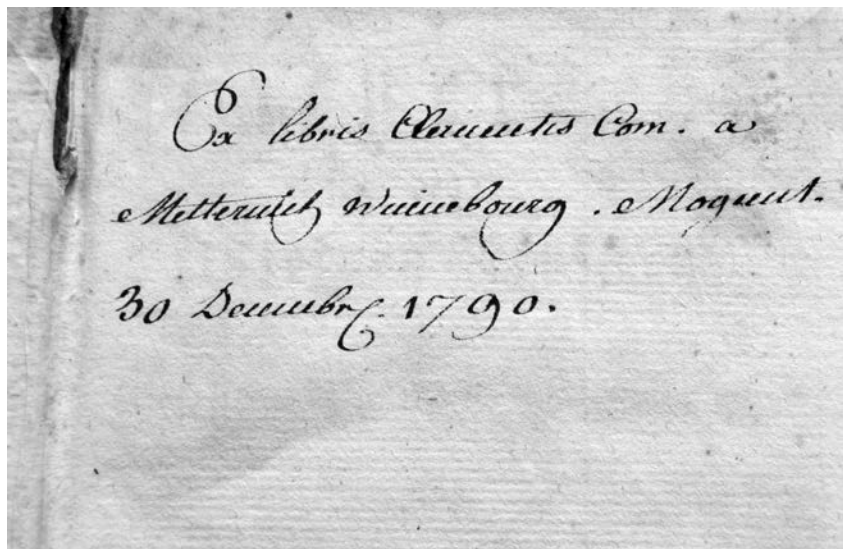 Ex libris Clementis Com. a
Metternich Winnebourg. Mogunt.
30 Decembr. 1790.